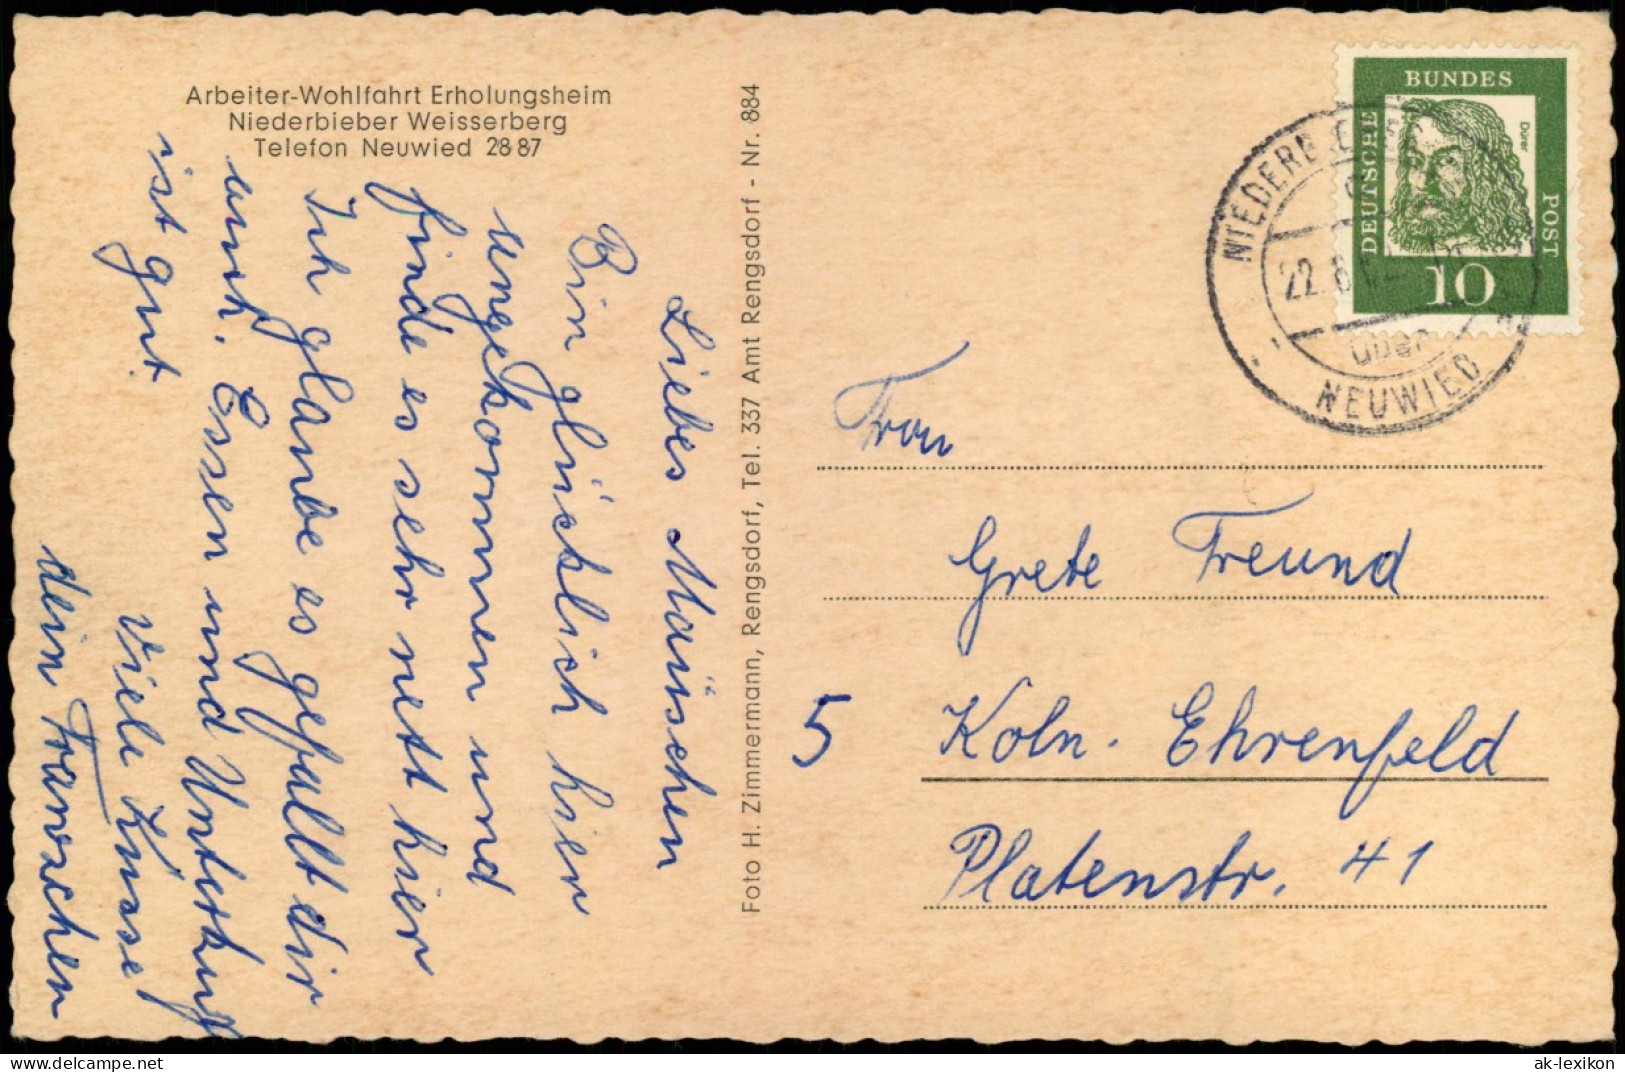 Arbeiter-Wohlfahrt Erholungsheim
Niederbieber Weisserberg
Telefon Neuwied 28 87
Liebes Mäuschen
Bin glücklich hier
angekommen und
finde es sehr nett hier
Ich glaube es gefällt dir
auch. Essen und Unterkunft
ist gut.
Viele Küsse
dein Franzchen
Foto H. Zimmermann, Rengsdorf, Tel. 337 Amt Rengsdorf - Nr. 884
DEUTSCHE
BUNDES
POST
Dürer
10
NIEDERBIEBER
22.8.62
über
NEUWIED
Frau
Grete Freund
5 Köln. Ehrenfeld
Platenstr. 41
delcampe.net
ak-lexikon